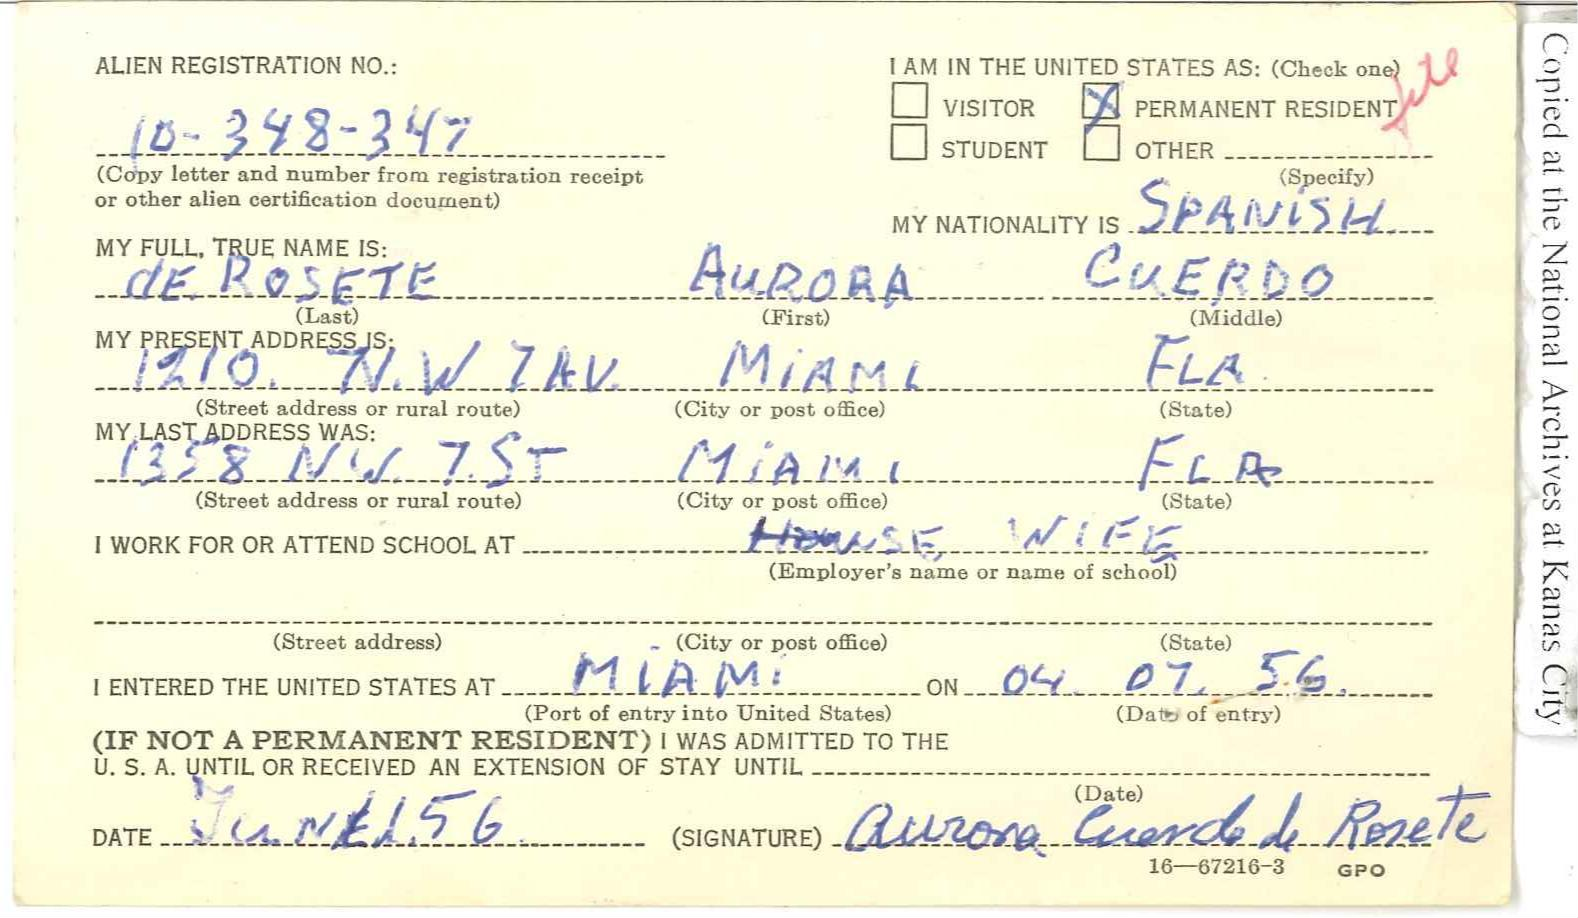 ALIEN REGISTRATION NO.:
10-348-347
(Copy letter and number from registration receipt
or other alien certification document)
I AM IN THE UNITED STATES AS: (Check one)
VISITOR X PERMANENT RESIDENT
STUDENT OTHER
(Specify)
MY NATIONALITY IS SPANISH
MY FULL, TRUE NAME IS:
dE ROSETE AURORA CUERDO
(Last) (First) (Middle)
MY PRESENT ADDRESS IS:
1210. N.W 7 AV. MiAMi FLA
(Street address or rural route) (City or post office) (State)
MY LAST ADDRESS WAS:
1358 NW. 7. ST MiAMi FLA
(Street address or rural route) (City or post office) (State)
I WORK FOR OR ATTEND SCHOOL AT HOUSE WIFE
(Employer's name or name of school)
(Street address) (City or post office) (State)
I ENTERED THE UNITED STATES AT MiAMi ON 04. 07. 56.
(Port of entry into United States) (Date of entry)
(IF NOT A PERMANENT RESIDENT) I WAS ADMITTED TO THE
U. S. A. UNTIL OR RECEIVED AN EXTENSION OF STAY UNTIL
(Date)
DATE 56 (SIGNATURE) Aurora Cuerdo de Rosete
16—67216-3 GPO
Copied at the National Archives at Kanas City